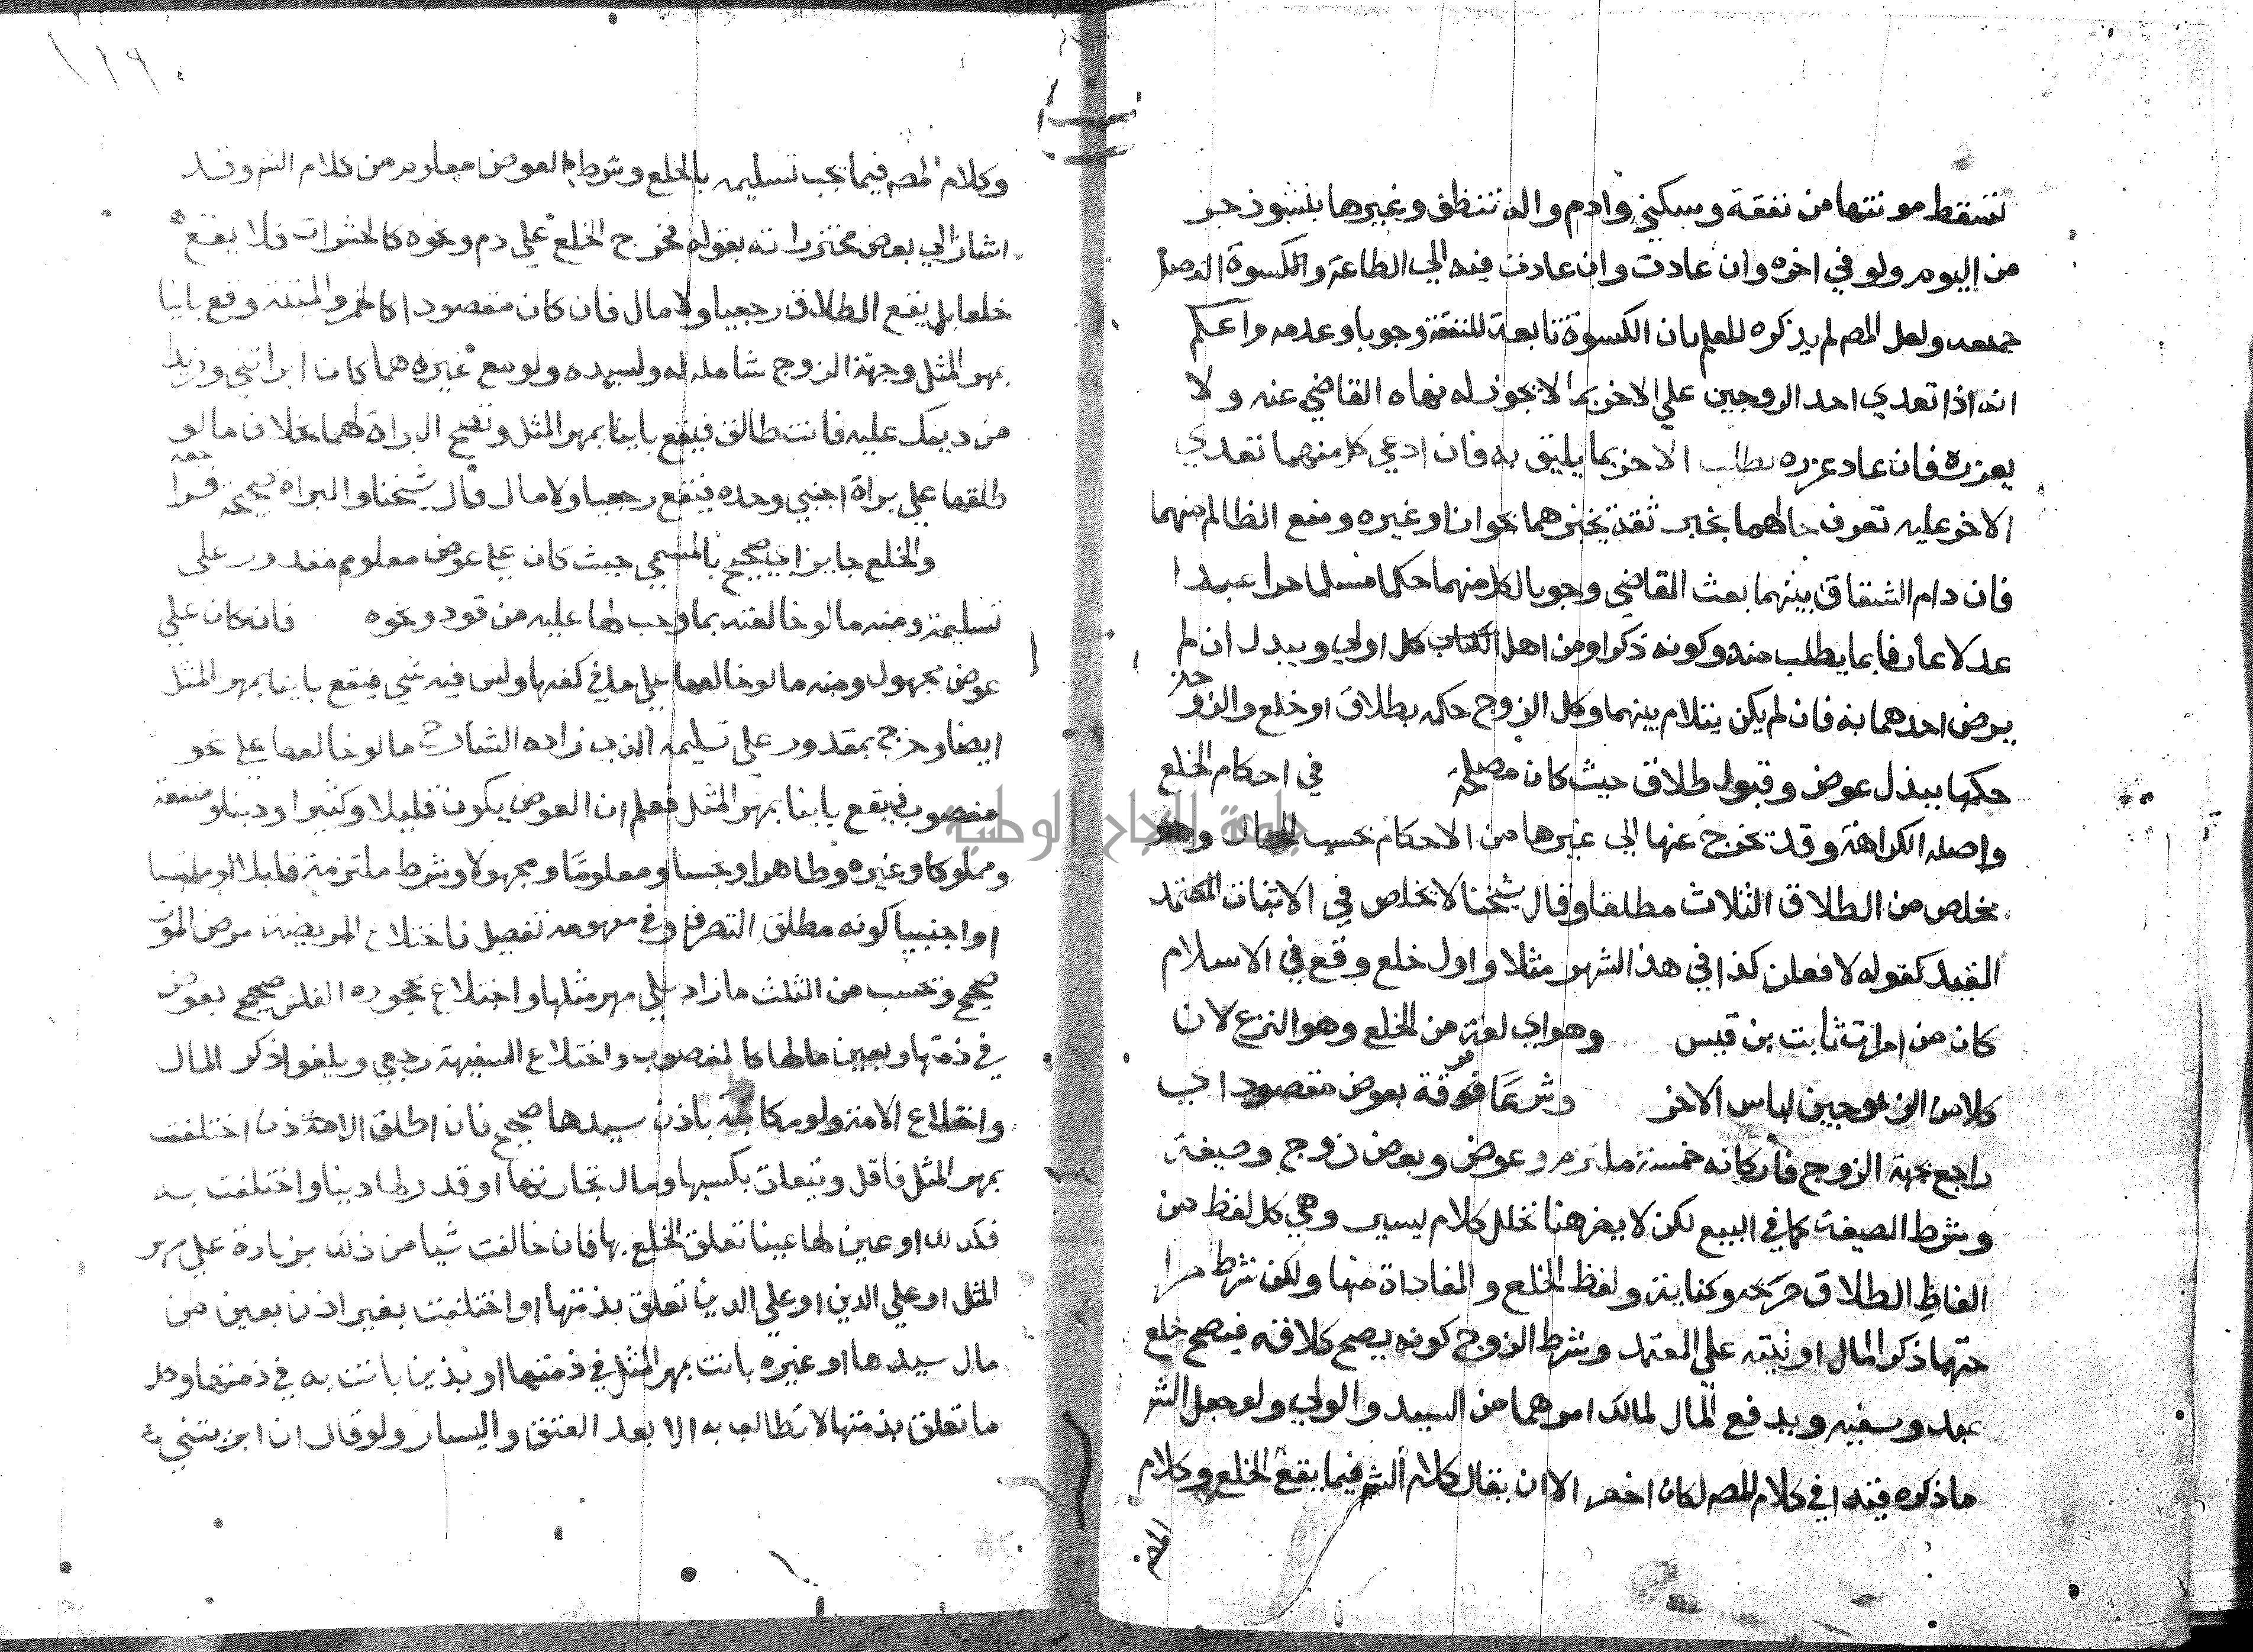 تسقط مونتها من نفقة وسكني وادم والة تنظف وغيرها بنشوز جز
من اليوم ولو في اخره وان عادت وان عادت فيه الي الطاعة والكسوة الفصل
جميعه ولعل المصم لم يذكره للعلم بان الكسوة تابعة للنفقة وجوبا وعدمه واعكم
انه اذا تعدي احد الزوجين علي الاخر بما لا يجوز له نهاه القاضي عنه ولا
يعزره فان عاد عزره بطلب الاخر بما يليق به فان ادعي كل منهما تعدي
الاخر عليه تعرف حالهما بخبر ثقة يخبرهما بجوار او غيره ومنع الظالم منهما
فان دام الشقاق بينهما بعث القاضي وجوبا لكل منهما حكما مسلما حرا عبدا
عدلا عارفا بما يطلب منه وكونه ذكرا ومن اهل الكتاب كل اولي ويبدل ان لم
يرض احدهما به فان لم يكن يتلام بينهما وكل الزوج حكمه بطلاق او خلع والزوجة
حكمها ببذل عوض وقبول طلاق حيث كان مصلحة في احكام الخلع
واصله الكراهة وقد تخرج عنها الي غيرها من الاحكام بحسب الحال وهو
مخلص من الطلاق الثلاث مطلقا وقال شيخنا لا يخلص في الاثبات المعتمد
القيد كقوله لافعلن كذا في هذا الشهر مثلا واول خلع وقع في الاسلام
كان من امراة ثابت بن قيس وهو اي لغة من الخلع وهو النزع لان
كلا من الزوجين لباس الاخر وشرعا فرقة بعوض مقصود اي
راجع لجهة الزوج فاركانه خمسة ملتزم وعوض وبعض زوج وصيغة
وشرط الصيغة كما في البيع لكن لا يضر هنا تخلل كلام يسير وهي كل لفظ من
الفاظ الطلاق صريحه وكنايته ولفظ الخلع والمفاداة منها ولكن شرط صرا
حتهما ذكر المال او نيته علي المعتمد وشرط الزوج كونه يصح طلاقه فيصح خلع
عبد وسفيه ويدفع المال لمالك امرهما من السيد والولي ولو جعل الشر
ما ذكره قيدا في كلام المصم لكان اخصر الا ان يقال كلام الشر فيما يقع الخلع وكلام
المص
١١٩
وكلام المصم فيما تجب تسليمه بالخلع وشرط العوض معلوم من كلام الشر وقد
اشار الي بعض محترزاته بقوله فخرج الخلع علي دم ونحوه كالحشرات فلا يقع
خلعا بل يقع الطلاق رجعيا ولا مال فان كان مقصودا كالخمر والميتة وقع باينا
بمهر المثل وجهة الزوج شاملة له ولسيده ولو مع غيرهما كان ابراتني وزيدا
من دينك عليه فانت طالق فيقع باينا بمهر المثل وتصح البراة لهما بخلاف ما لو
طلقها علي براة اجنبي وحده فيقع رجعيا ولا مال قال شيخنا والبراة صحيحة فراجعه
والخلع جايز اي صحيح بالمسمي حيث كان علي عوض معلوم مقدور علي
تسليمه ومنه ما لو خالعته بما وجب لها عليه من قود ونحوه فان كان علي
عوض مجهول ومنه ما لو خالعها علي ما في كفها وليس فيه شي فيقع باينا بمهر المثل
ايضا وخرج بمقدور علي تسليمه الذي زاده الشارح ما لو خالعها علي نحو
مغصوب فيقع باينا بمهر المثل فعلم ان العوض يكون قليلا وكثيرا ودينا ومنفعة
ومملوكا وغيره وطاهرا ونجسا ومعلوما ومجهولا وشرط ملتزمة قابلا او ملتمسا
او اجنبيا كونه مطلق التصرف وفي مفهومه تفصيل فاختلاع المريضة مرض الموت
صحيح وتحسب من الثلث ما زاد علي مهر مثلها واختلاع محجورة الفلس صحيح بعوض
في ذمتها وبعين مالها كالمغصوب واختلاع السفيهة رجعي ويلغوا ذكر المال
واختلاع الامة ولو مكاتبة باذن سيدها صحيح فان اطلق الاذن اختلعت
بمهر المثل فاقل ويتعلق بكسبها ومال تجارتها او قدر لها دينا واختلعت به
فكذلك او عين لها عينا تعلق الخلع بها فان خالفت شيا من ذلك بزيادة علي مهر
المثل او علي الدين او علي الدين تعلق بذمتها او اختلعت بغير اذن بعين من
مال سيدها او غيره بانت بمهر المثل في ذمتها او بدين بانت به في ذمتها وكل
ما تعلق بذمتها لا تطالب به الا بعد العتق واليسار ولو قال ان ابريتني